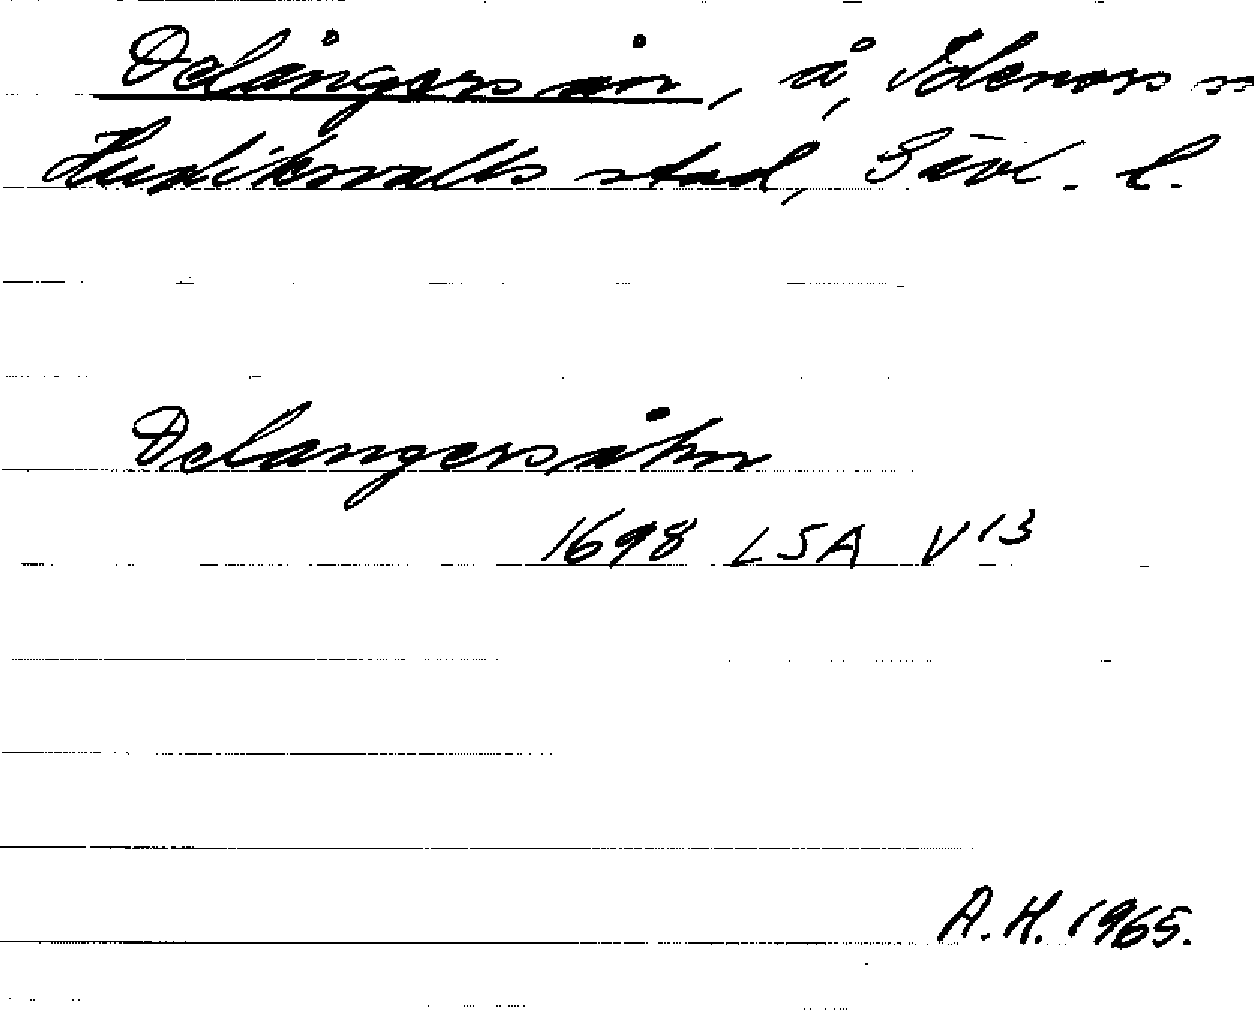 Delångersån, å, Idenors sn
Hudiksvalls stad, Gävl. l.
Delangersåhn
1698 LSA V13
A.H. 1965.